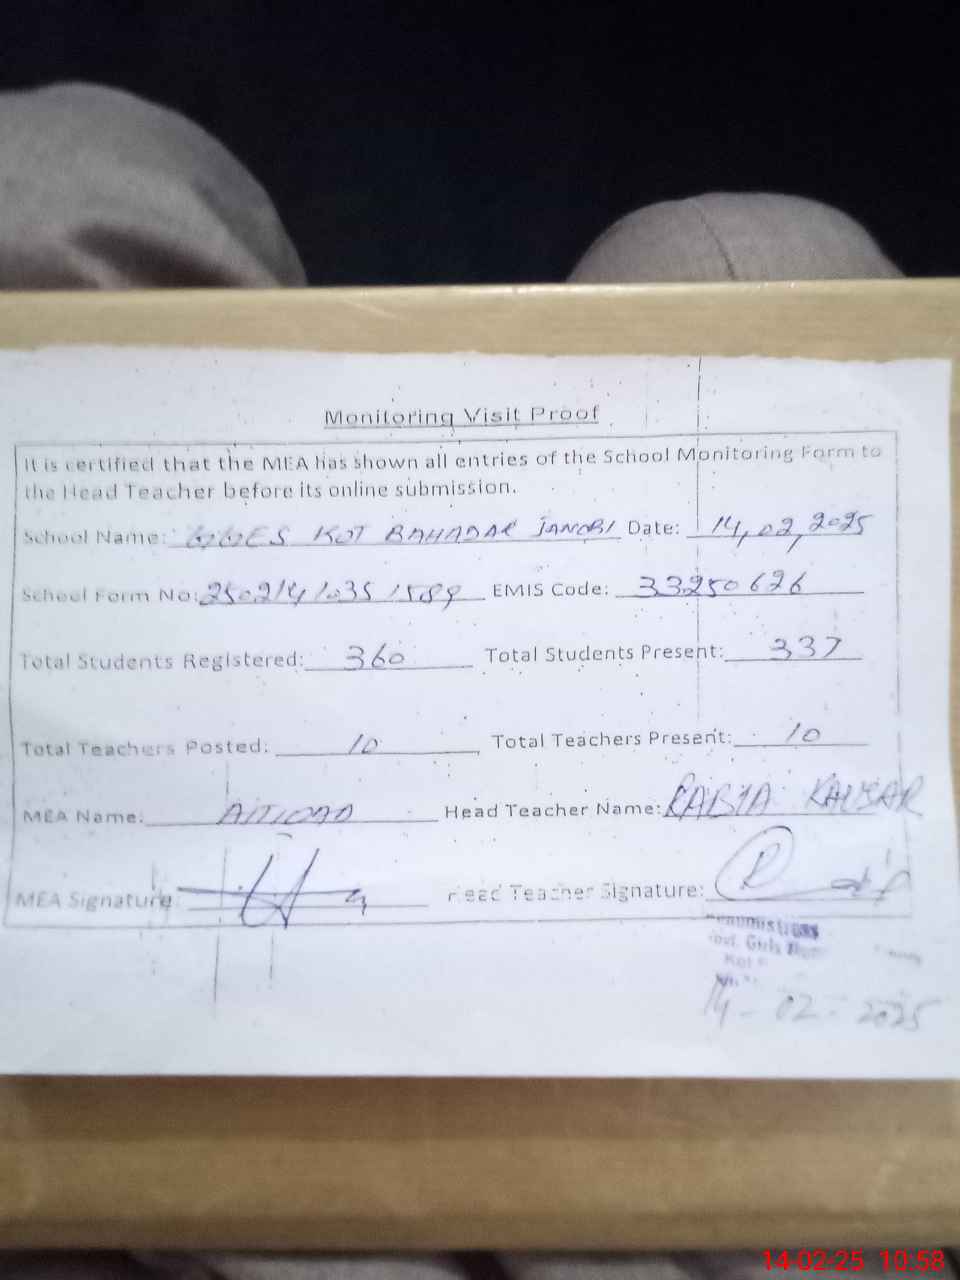 Monitoring Visit Proof
It is certified that the MEA has shown all entries of the School Monitoring Form to
the Head Teacher before its online submission.
School Name: GGES KOT BAHADAR JANOBI Date: 14,02,2025
School Form No: 250214 1035 1589 EMIS Code: 33250626
Total Students Registered: 360 Total Students Present: 337
Total Teachers Posted: 10 Total Teachers Present: 10
MEA Name: Head Teacher Name: RABIA KAUSAR
MEA Signature: Head Teacher Signature:
Headmistress
Govt. Girls
Kot
14-02-2025
14-02-25 10:58